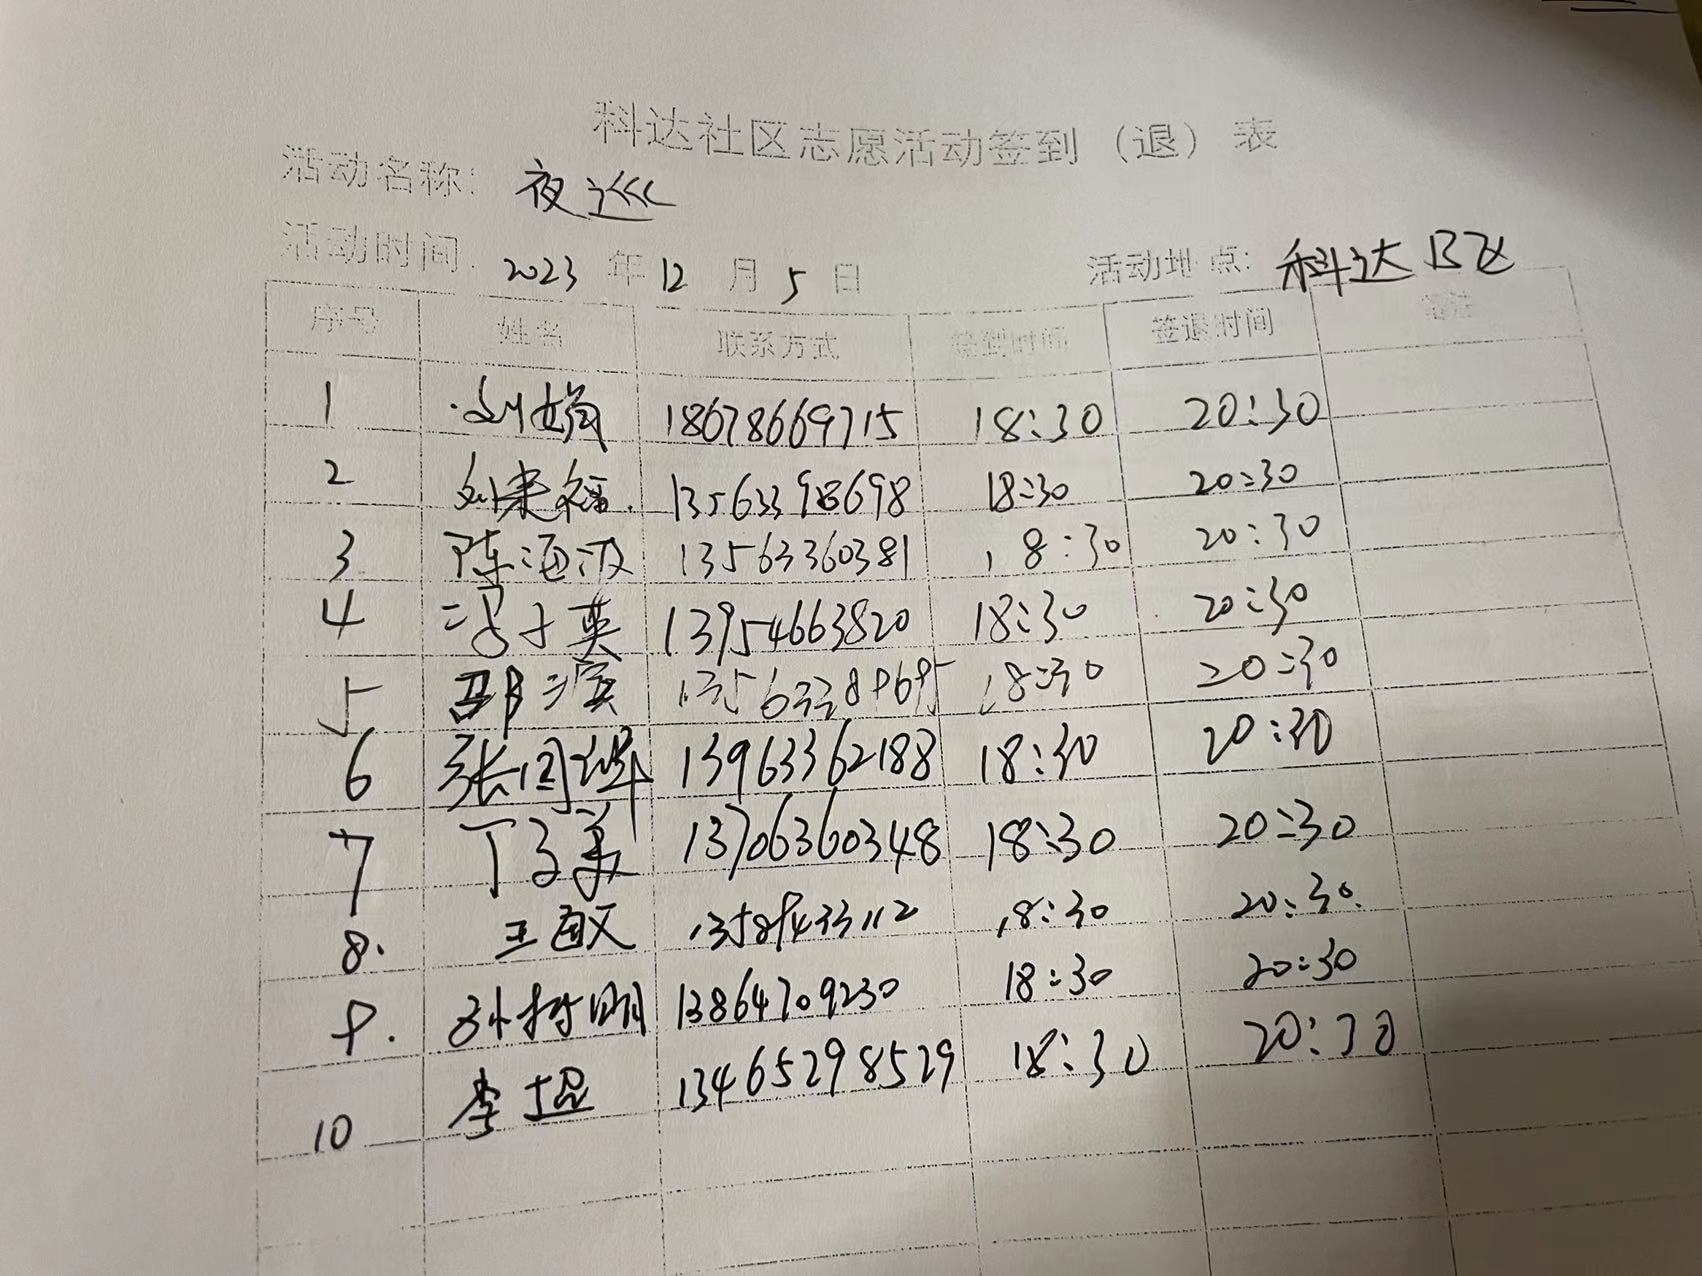 科达社区志愿活动签到（退）表
活动名称：夜巡
活动时间：2023年12月5日 活动地点：科达B区
序号 姓名 联系方式 签到时间 签退时间 备注
1 刘娟 18678669715 18:30 20:30
2 刘来福 13563398698 18:30 20:30
3 陈海波 13563360381 18:30 20:30
4 冯子英 13954663820 18:30 20:30
5 邵滨 13563389695 18:30 20:30
6 张国 13963362188 18:30 20:30
7 丁子美 13706360348 18:30 20:30
8. 王敏 13589433112 18:30 20:30
9. 孙树明 13864709230 18:30 20:30
10 李超 13465298529 18:30 20:30